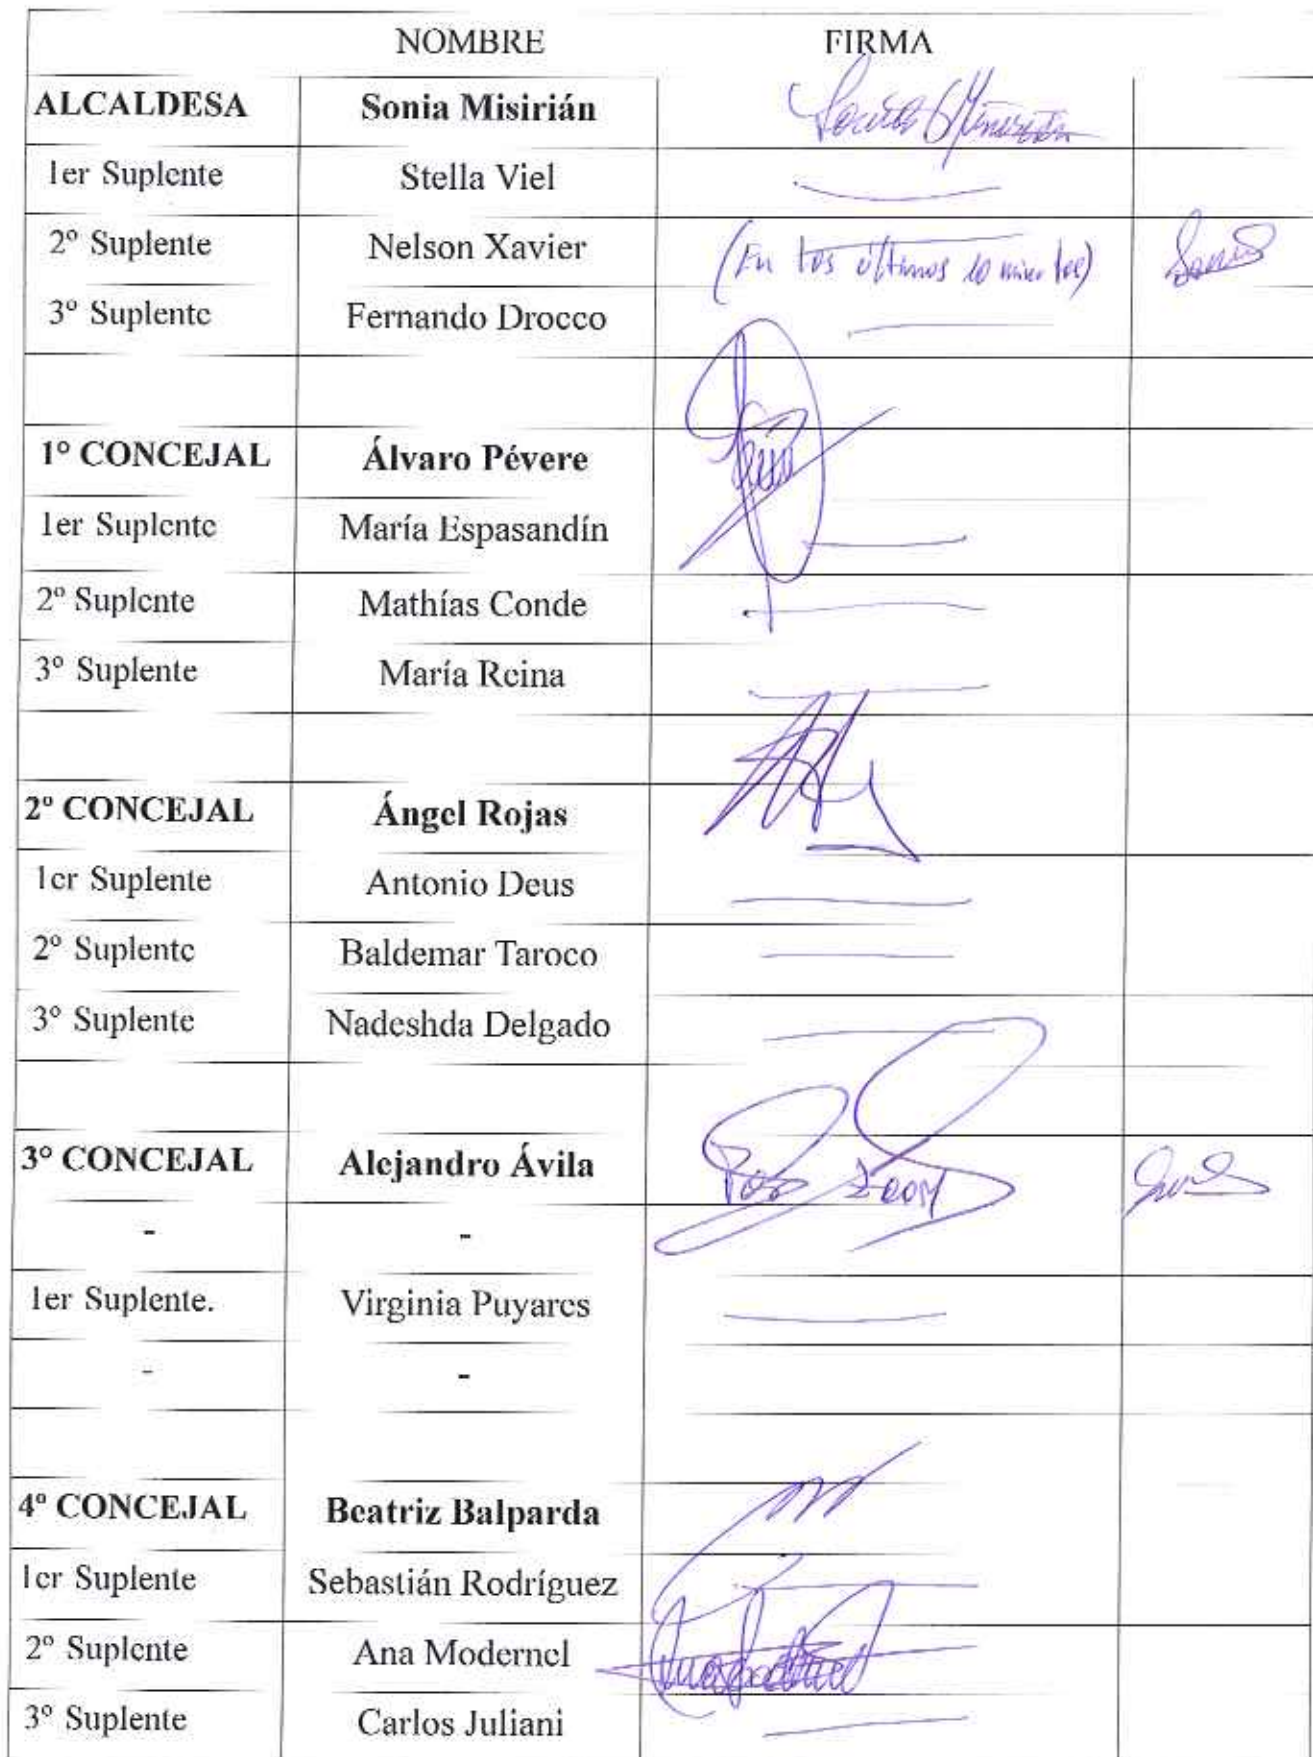 NOMBRE FIRMA
ALCALDESA Sonia Misirián Sonia Misirián
1er Suplente Stella Viel
2º Suplente Nelson Xavier (En los últimos 10 minutos)
3º Suplente Fernando Drocco
1º CONCEJAL Álvaro Pévere
1er Suplente María Espasandín
2º Suplente Mathías Conde
3º Suplente María Reina
2º CONCEJAL Ángel Rojas
1er Suplente Antonio Deus
2º Suplente Baldemar Taroco
3º Suplente Nadeshda Delgado
3º CONCEJAL Alejandro Ávila Por Zoom
- -
1er Suplente. Virginia Puyares
- -
4º CONCEJAL Beatriz Balparda
1er Suplente Sebastián Rodríguez
2º Suplente Ana Modernel
3º Suplente Carlos Juliani